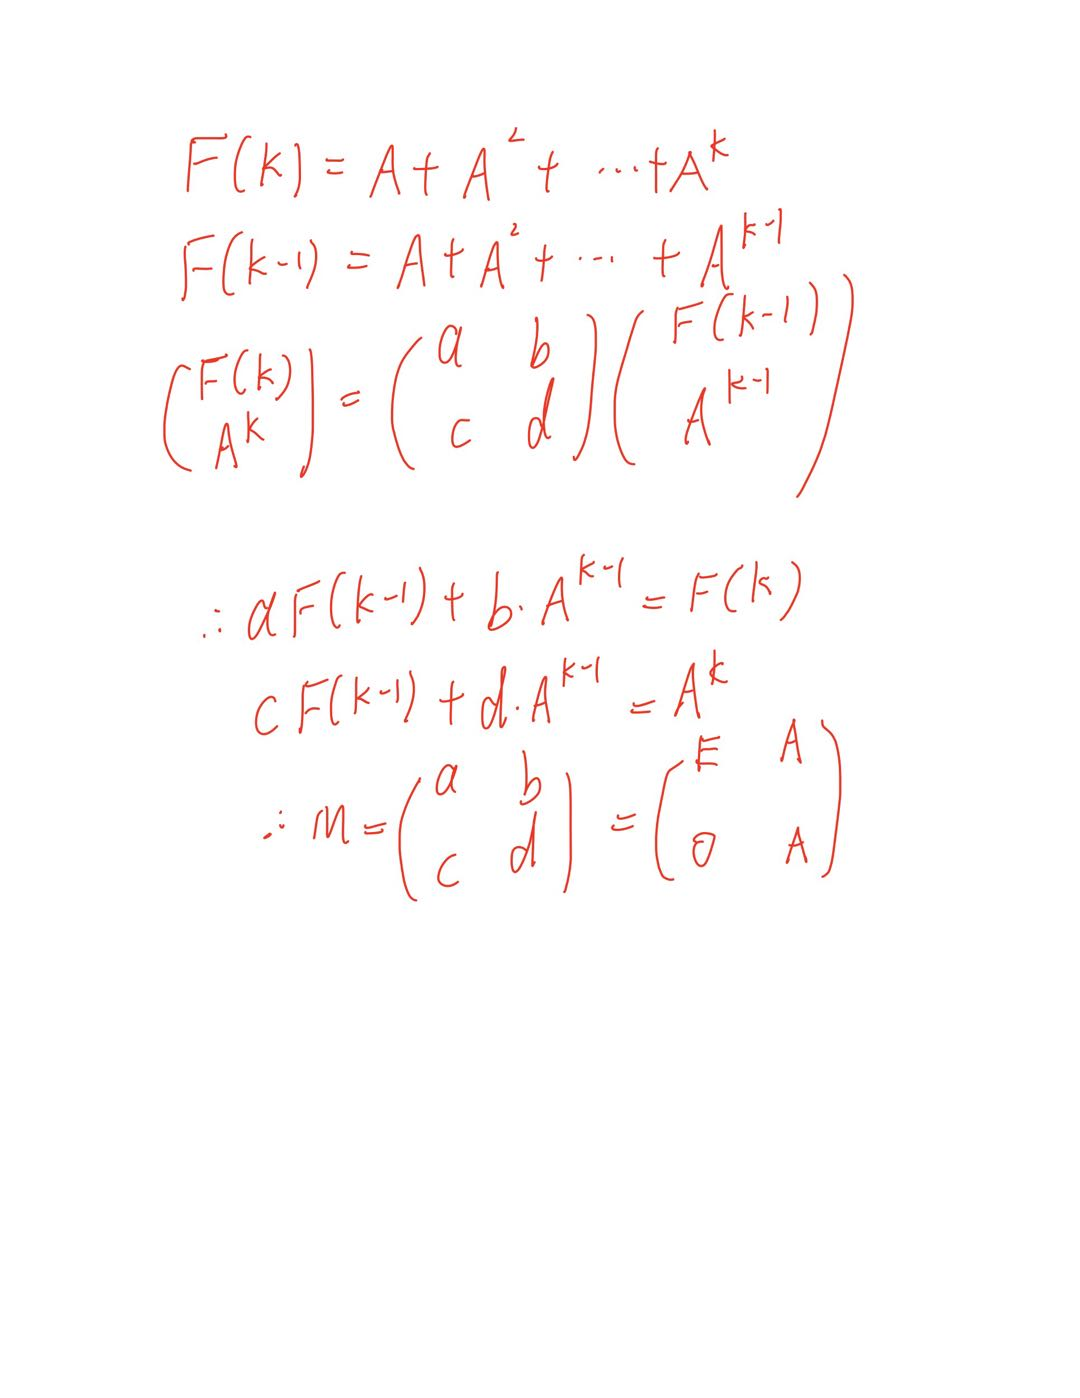 F(k) = A + A² + ... + A^k
F(k-1) = A + A² + ... + A^{k-1}
(F(k) A^k) = (a b c d) (F(k-1) A^{k-1})
∴ aF(k-1) + b·A^{k-1} = F(k)
cF(k-1) + d·A^{k-1} = A^k
∴ M = (a b c d) = (E A 0 A)